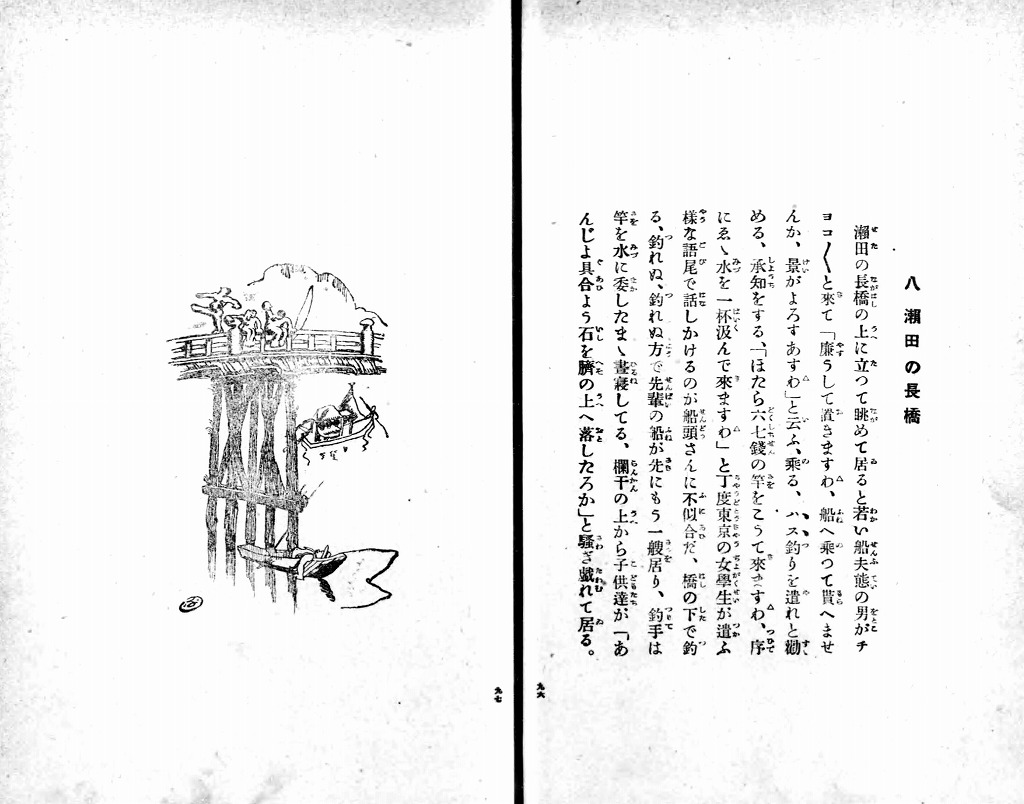 八 瀨田の長橋
瀨田の長橋の上に立つて眺めて居ると若い船夫態の男がチ
ヨコ〳〵と來て「廉うして置きますわ、船へ乘つて貰へませ
んか、景がよろすあすわ」と云ふ、乘る、ハス釣りを遣れと勸
める、承知をする、「ほたら六七錢の竿をこうて來ますわ、序
にゑゝ水を一杯汲んで來ますわ」と丁度東京の女學生が遣ふ
樣な語尾で話しかけるのが船頭さんに不似合だ、橋の下で釣
る、釣れぬ、釣れぬ方で先輩の船が先にもう一艘居り、釣手は
竿を水に委したまゝ晝寢してる、欄干の上から子供達が「あ
んじよ具合よう石を臍の上へ落したろか」と騷ぎ戱れて居る。
九六
九七